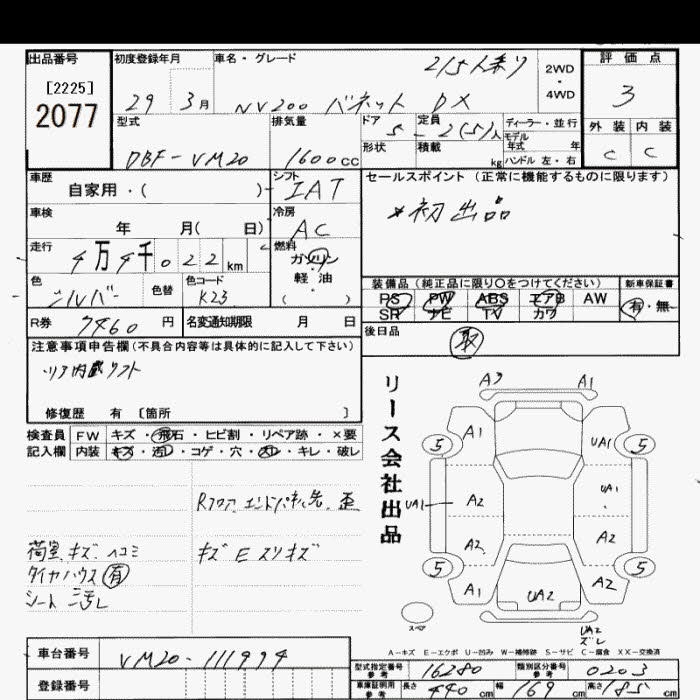 出品番号 初度登録年月 車名・グレード 評価点
[2225] 2/5人乗り 2WD・4WD 3
2077 29 3月 NV200 バネット DX
型式 排気量 ドア 定員 ディーラー・並行 外装 内装
DBF-VM20 1600cc 5 2(5)人 モデル年式 年 C C
形状 積載 kg ハンドル 左・右
車歴 シフト セールスポイント (正常に機能するものに限ります)
自家用・( ) IAT
車検 冷房 *初出品
年 月( 日) AC
走行 燃料
4万4千022km ガソリン
色 色替 色コード 軽油
シルバー K23 ( )
装備品 (純正品に限り〇をつけてください) 新車保証書
PS PW ABS エアB AW 有・無
SR ナビ TV カワ
R券 7460円 名変通知期限 月 日
後日品 取
注意事項申告欄 (不具合内容等は具体的に記入して下さい)
リア内蔵リフト
修復歴 有 〔箇所 〕
検査員 FW キズ・飛石・ヒビ割・リペア跡・×要
記入欄 内装 キズ・汚レ・コゲ・穴・欠レ・キレ・破レ
Rフロア、エンドパネル先、歪
荷室 キズ ヘコミ キズ E スリキズ
タイヤハウス 有
シート 汚レ
リース会社出品
A3 A1
A1 UA1
5 5
UA1 A2 UA1
A2 A2
5 5
A1 UA2 A2
スペア UA2
ズレ
A-キズ E-エクボ U-凹み W-補修跡 S-サビ C-腐食 XX-交換済
車台番号 VM20-111994
登録番号
型式指定番号 参考 16280 類別区分番号 参考 0203
車庫証明用 参考 長さ 440cm 幅 169cm 高さ 185cm